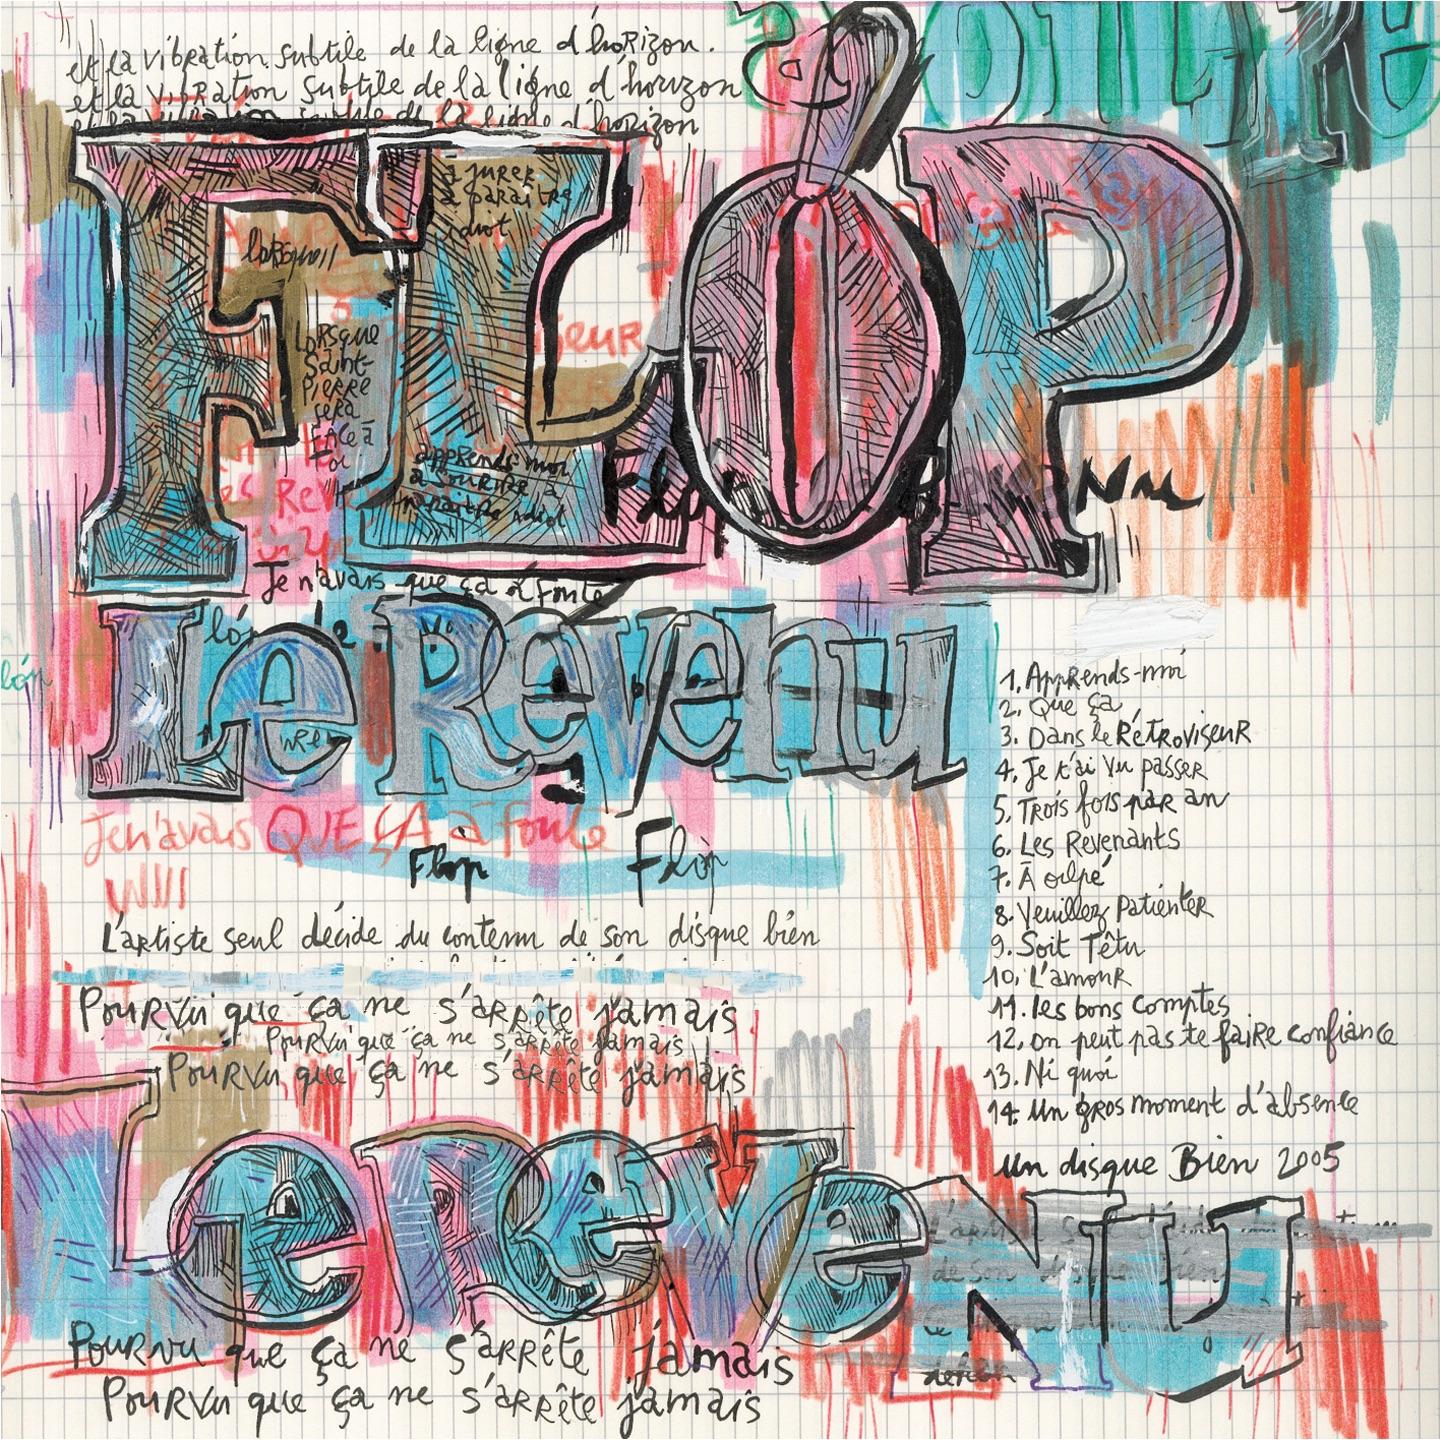 et la vibration subtile de la ligne d'horizon.
et la vibration subtile de la ligne d'horizon
et la vibration subtile de la ligne d'horizon
FLÓP
à jurer
à paraître
idiot
lorsqu'il
Lorsque
Saint-
Pierre
sera
face à
toi
apprends-moi
à sourire à
Je n'avais que ça à foutre
Le Revenu
lóp
Je n'avais QUE ÇA à foutre
Flop Flòp
L'artiste seul décide du contenu de son disque bien
Pourvu que ça ne s'arrête jamais
Pourvu que ça ne s'arrête jamais
Pourvu que ça ne s'arrête jamais
1. Apprends-moi
2. Que ça
3. Dans le Rétroviseur
4. Je t'ai vu passer
5. Trois fois par an
6. Les Revenants
7. À oilpé
8. Veuillez Patienter
9. Soit Têtu
10. L'amour
11. les bons comptes
12. on peut pas te faire confiance
13. Ni quoi
14. un gros moment d'absence
un disque Bien 2005
Le ReveNU
de son disque bien
Pourvu que ça ne s'arrête jamais
Pourvu que ça ne s'arrête jamais